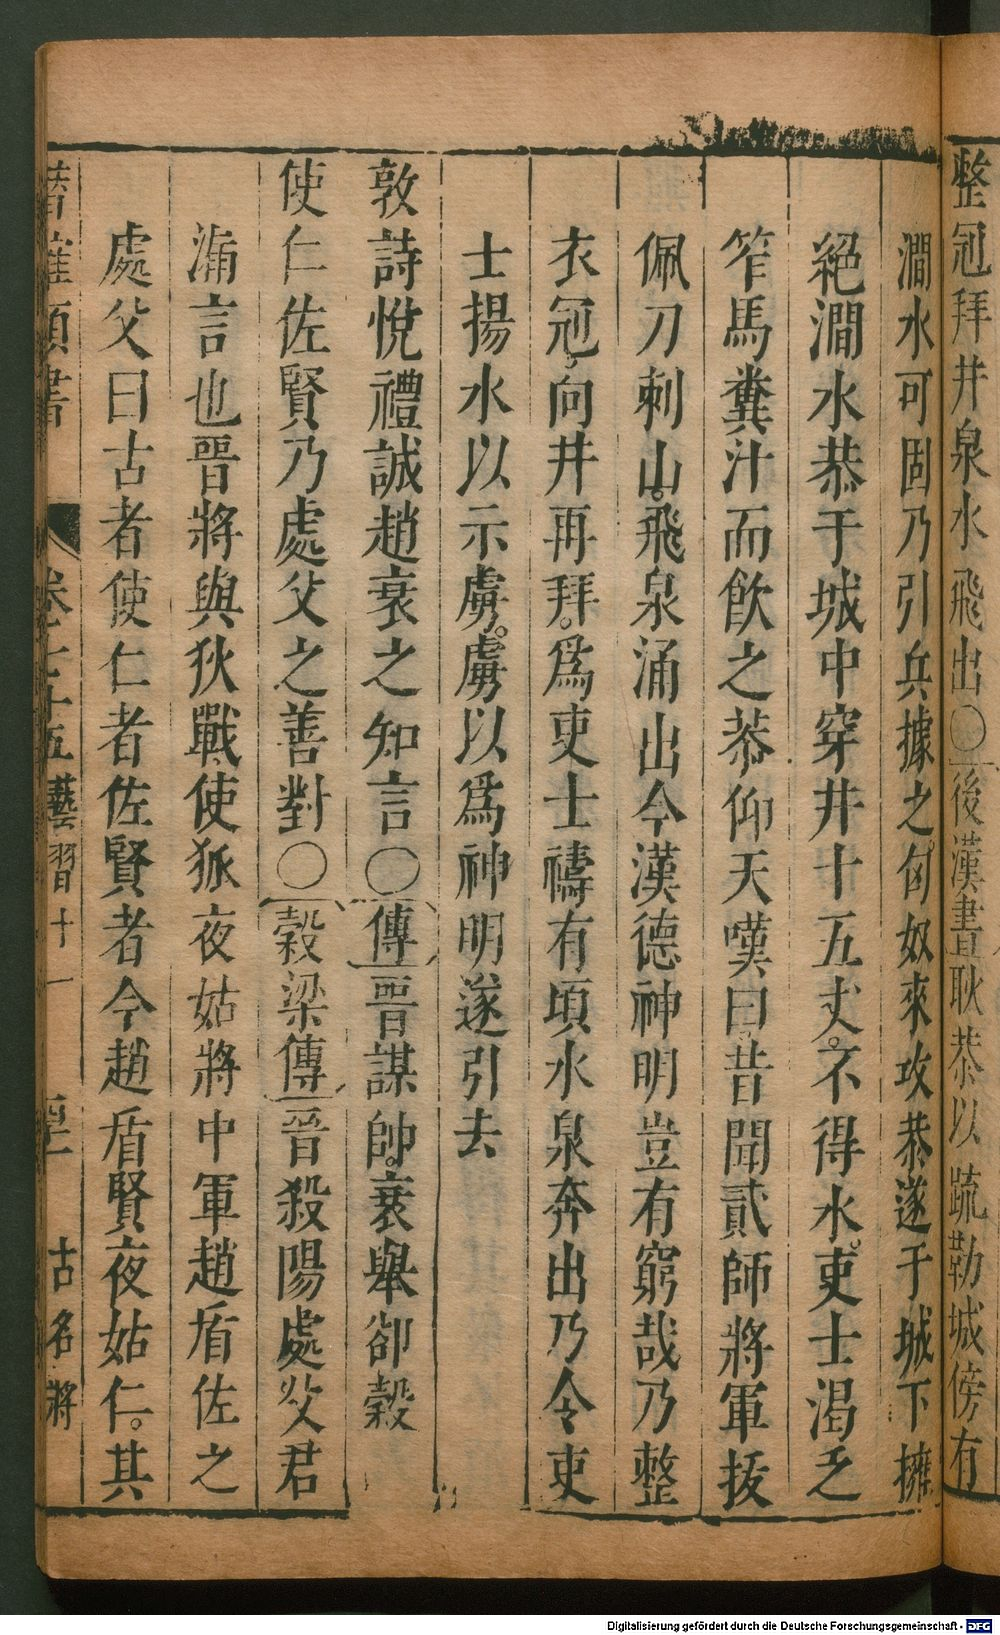 整冠拜井泉水飛出○後漢書耿恭以疏勒城傍有
澗水可固乃引兵據之匈奴來攻恭遂于城下擁
絕澗水恭于城中穿井十五丈不得水吏士渴乏
笮馬糞汁而飲之恭仰天嘆曰昔聞貳師將軍拔
佩刀刺山飛泉涌出今漢德神明豈有窮哉乃整
衣冠向井再拜爲吏士禱有頃水泉奔出乃令吏
士揚水以示虜虜以爲神明遂引去
敦詩悅禮誠趙衰之知言○傳晉謀帥衰舉郤縠
使仁佐賢乃處父之善對○穀梁傳晉殺陽處父君
漏言也晉將與狄戰使狐夜姑將中軍趙盾佐之
處父曰古者使仁者佐賢者今趙盾賢夜姑仁其
卷七十五藝習十一 古名將
Digitalisierung gefördert durch die Deutsche Forschungsgemeinschaft - DFG